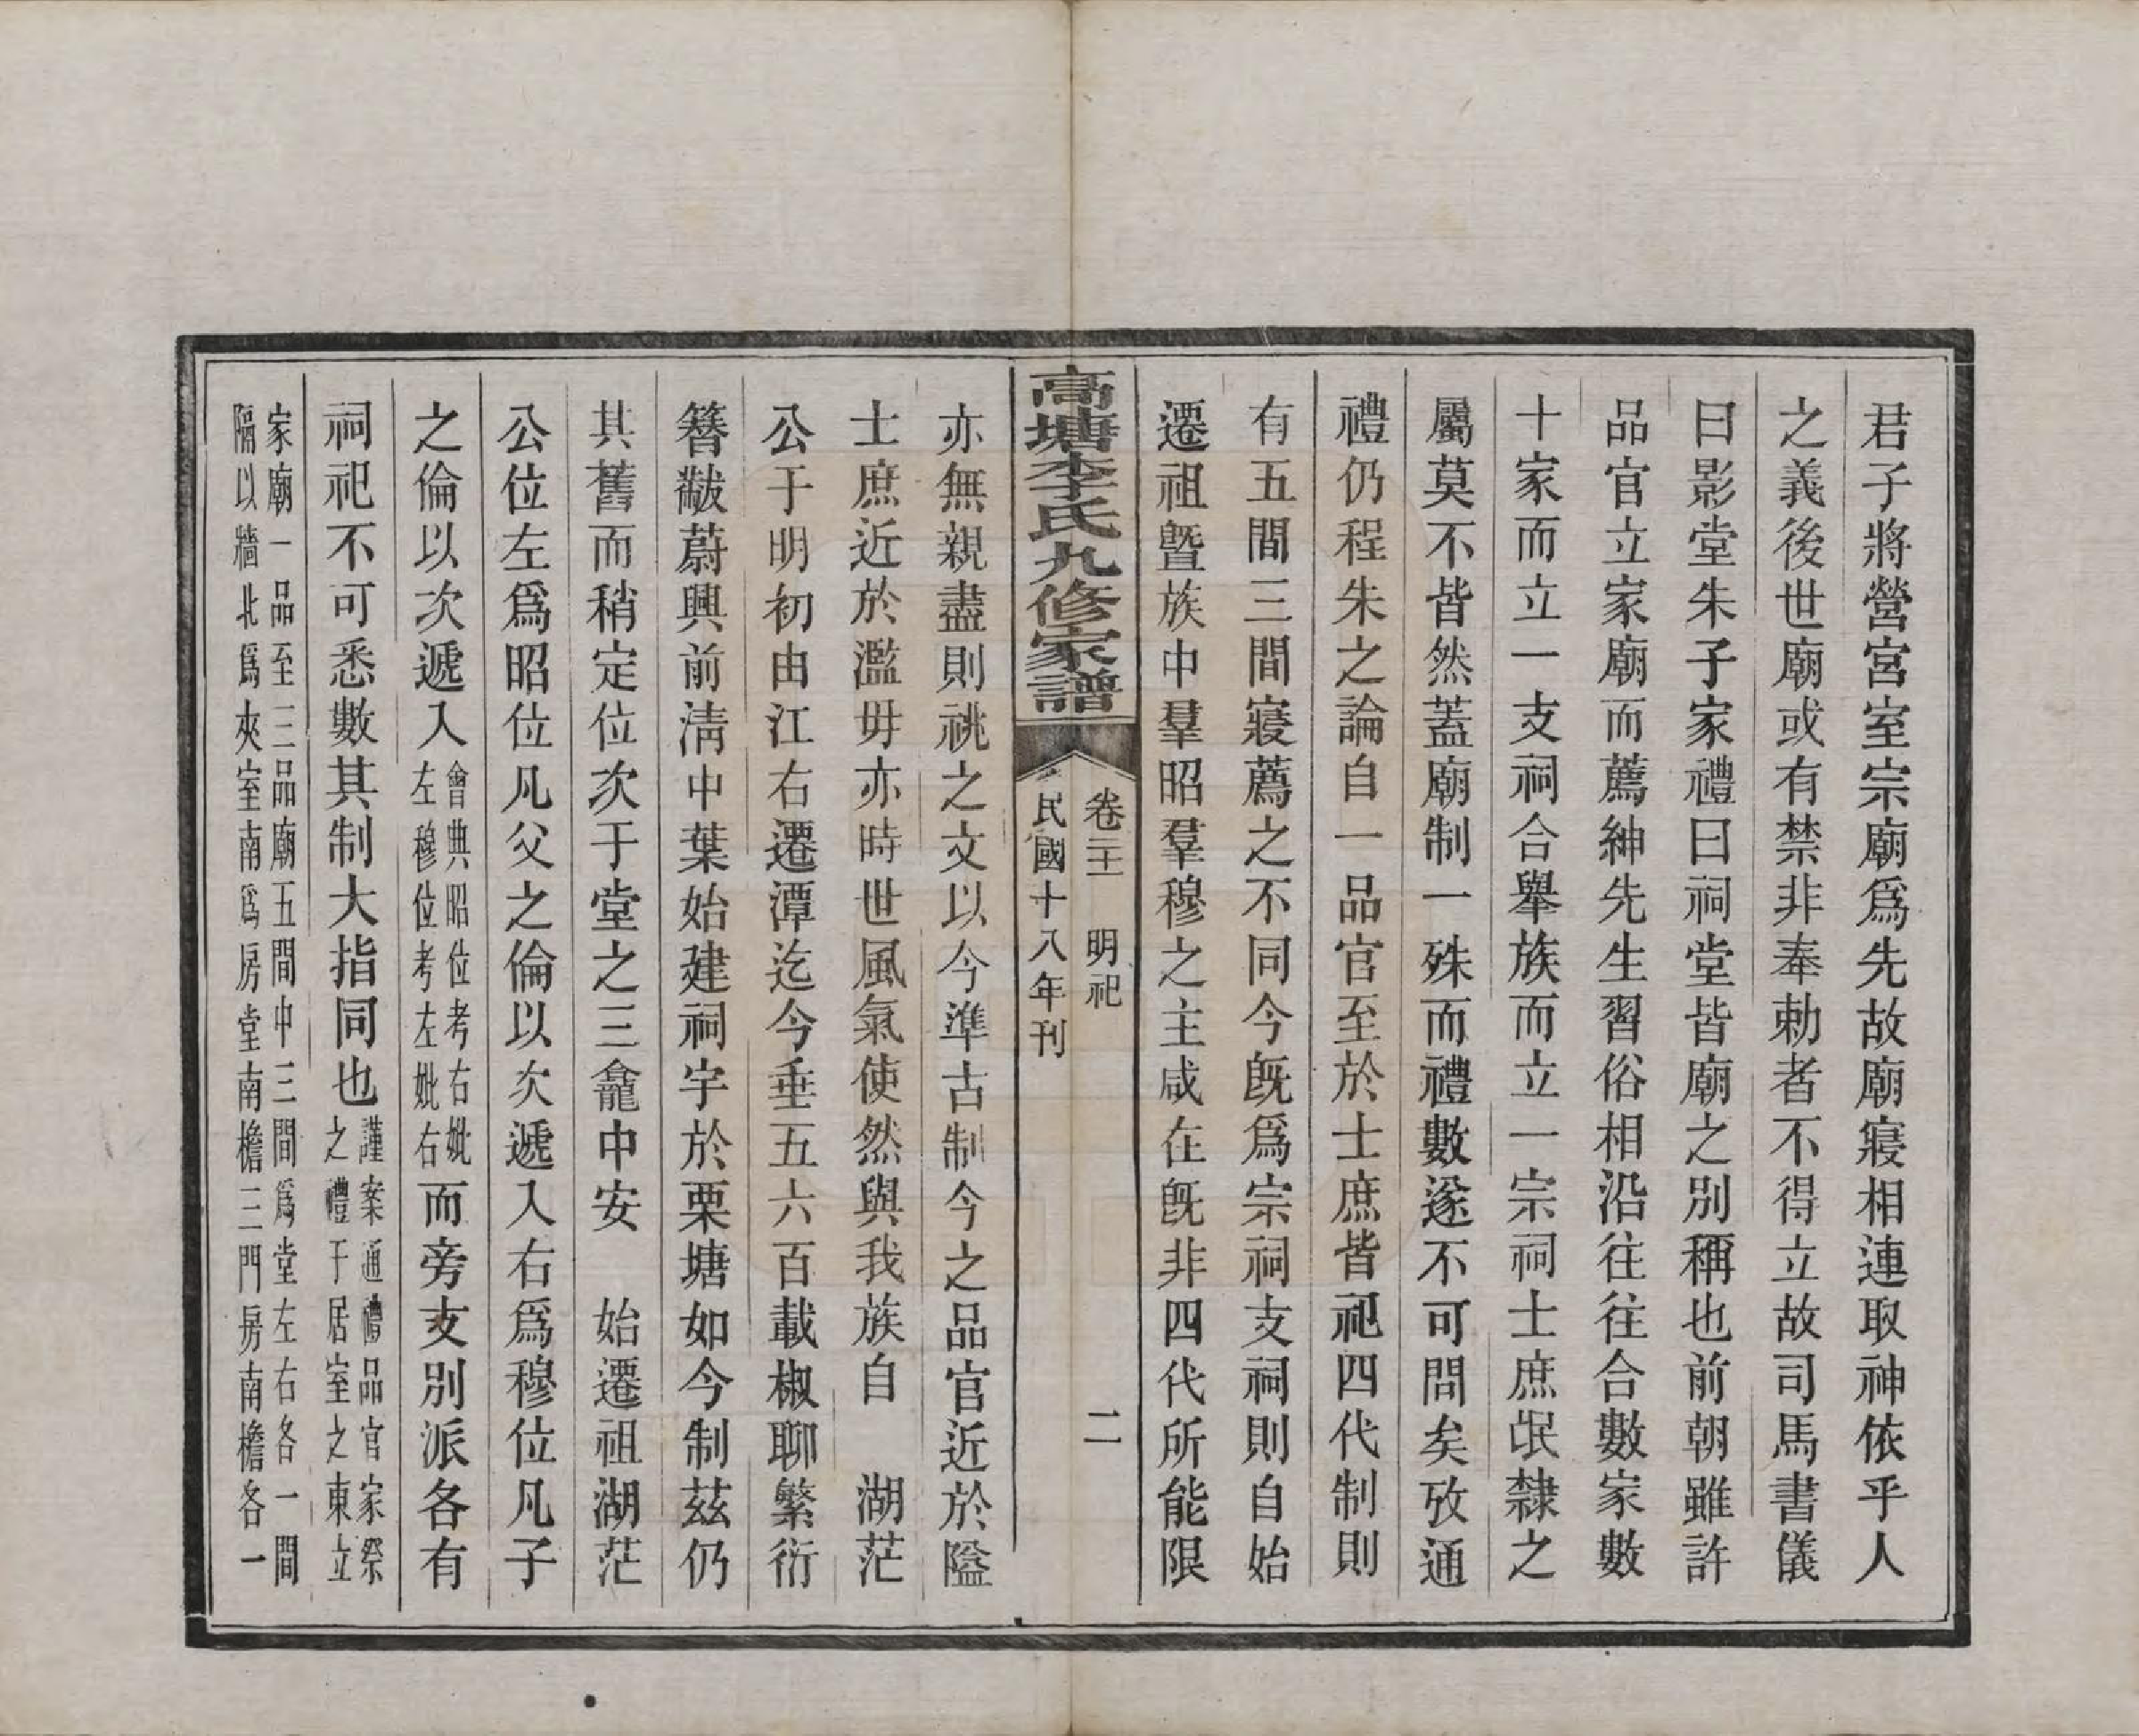 君子將營宮室宗廟爲先故廟寢相連取神依乎人
之義後世廟或有禁非奉勅者不得立故司馬書儀
曰影堂朱子家禮曰祠堂皆廟之別稱也前朝雖許
品官立家廟而薦紳先生習俗相沿往往合數家數
十家而立一支祠合舉族而立一宗祠士庶氓隸之
屬莫不皆然蓋廟制一殊而禮數遂不可問矣攷通
禮仍程朱之論自一品官至於士庶皆祀四代制則
有五間三間寢薦之不同今既爲宗祠支祠則自始
遷祖曁族中羣昭羣穆之主咸在既非四代所能限
高塘李氏九修家譜
卷二十一 明祀 二
民國十八年刊
亦無親盡則祧之文以今準古制今之品官近於隘
士庶近於濫毋亦時世風氣使然與我族自 湖茫
公于明初由江右遷潭迄今垂五六百載椒聊繁衍
簪黻蔚興前淸中葉始建祠宇於栗塘如今制茲仍
其舊而稍定位次于堂之三龕中安 始遷祖湖茫
公位左爲昭位凡父之倫以次遞入右爲穆位凡子
之倫以次遞入會典昭位考右妣左穆位考左妣右而旁支別派各有
祠祀不可悉數其制大指同也謹案通禮品官家祭之禮于居室之東立
家廟一品至三品廟五間中三間爲堂左右各一間
隔以牆北爲夾室南爲房堂南檐三門房南檐各一